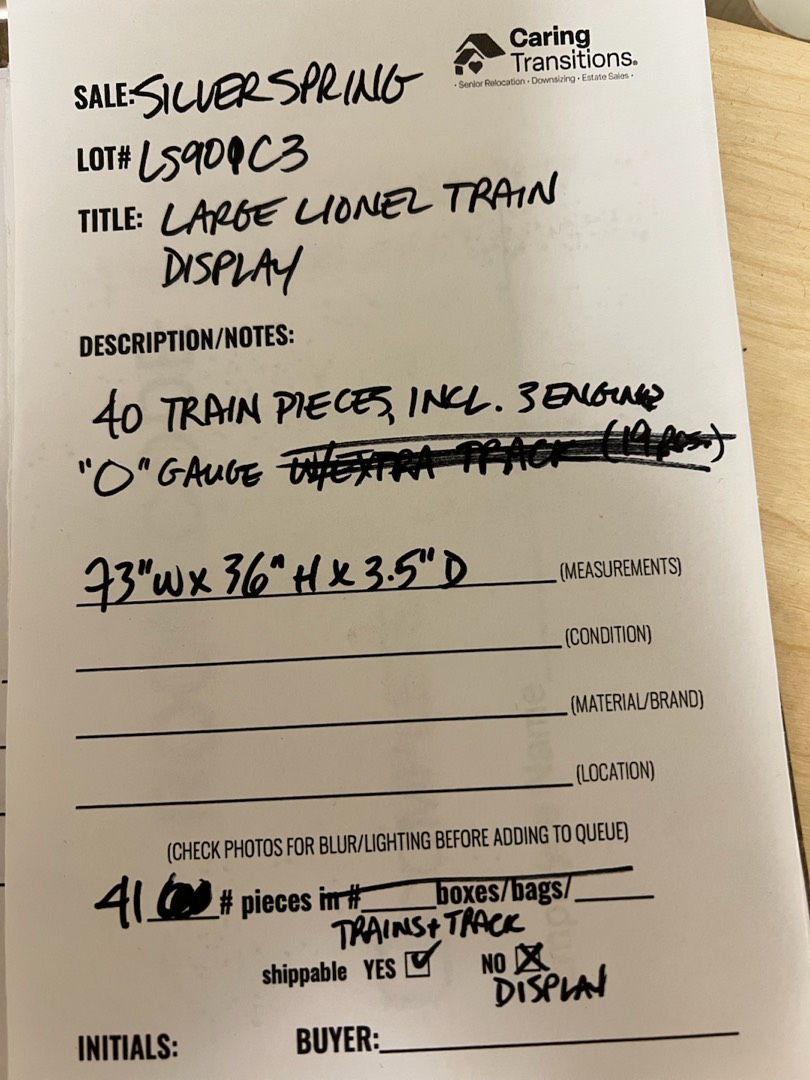 Caring
Transitions.
· Senior Relocation · Downsizing · Estate Sales ·
SALE: SILVERSPRING
LOT# LS901C3
TITLE: LARGE LIONEL TRAIN
DISPLAY
DESCRIPTION/NOTES:
40 TRAIN PIECES, INCL. 3 ENGINE
"O" GAUGE W/EXTRA TRACK (19 pcs.)
73"W x 36" H x 3.5" D (MEASUREMENTS)
(CONDITION)
(MATERIAL/BRAND)
(LOCATION)
(CHECK PHOTOS FOR BLUR/LIGHTING BEFORE ADDING TO QUEUE)
41 # pieces in # boxes/bags/
TRAINS + TRACK
shippable YES NO
DISPLAY
INITIALS: BUYER: